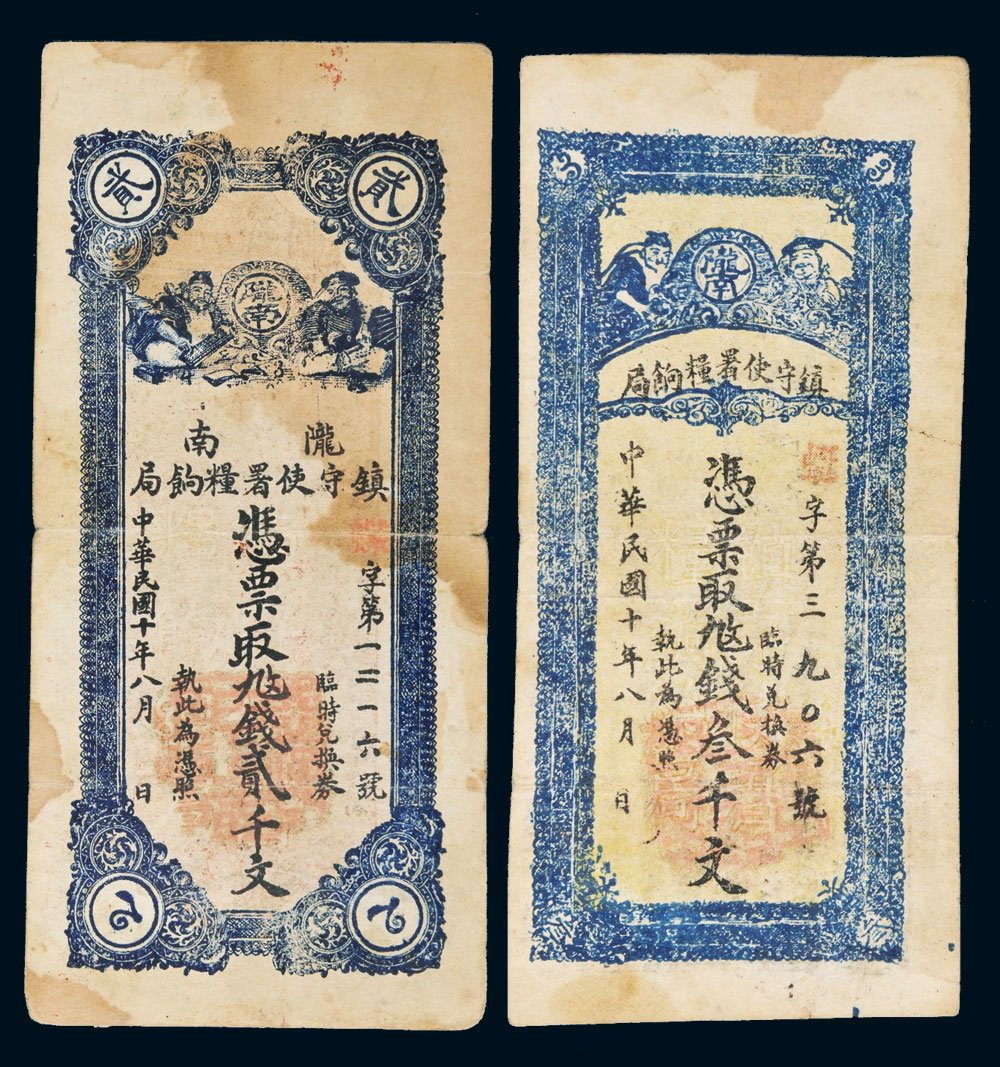 貳
貳
隴南
隴南
鎮守使署糧餉局
字第一二一六號
臨時兌換券
憑票取尨錢貳千文
執此為憑照
中華民國十年八月 日
隴南
鎮守使署糧餉局
字第三九〇六號
臨時兌換券
憑票取尨錢叁千文
執此為憑照
中華民國十年八月 日